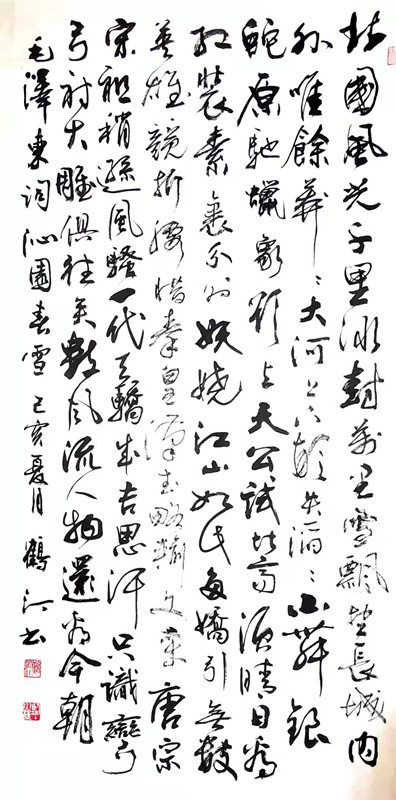 北國風光千里冰封萬里雪飄望長城內
外唯餘莽〻大河上下頓失滔〻山舞銀
蛇原馳蠟象欲与天公試比高須晴日看
紅裝素裹分外妖嬈江山如此多嬌引無數
英雄競折腰惜秦皇漢武略輸文采唐宗
宋祖稍遜風騷一代天驕成吉思汗只識彎
弓射大雕俱往矣數風流人物還看今朝
毛澤東詞沁園春雪 己亥夏月 鶴江書